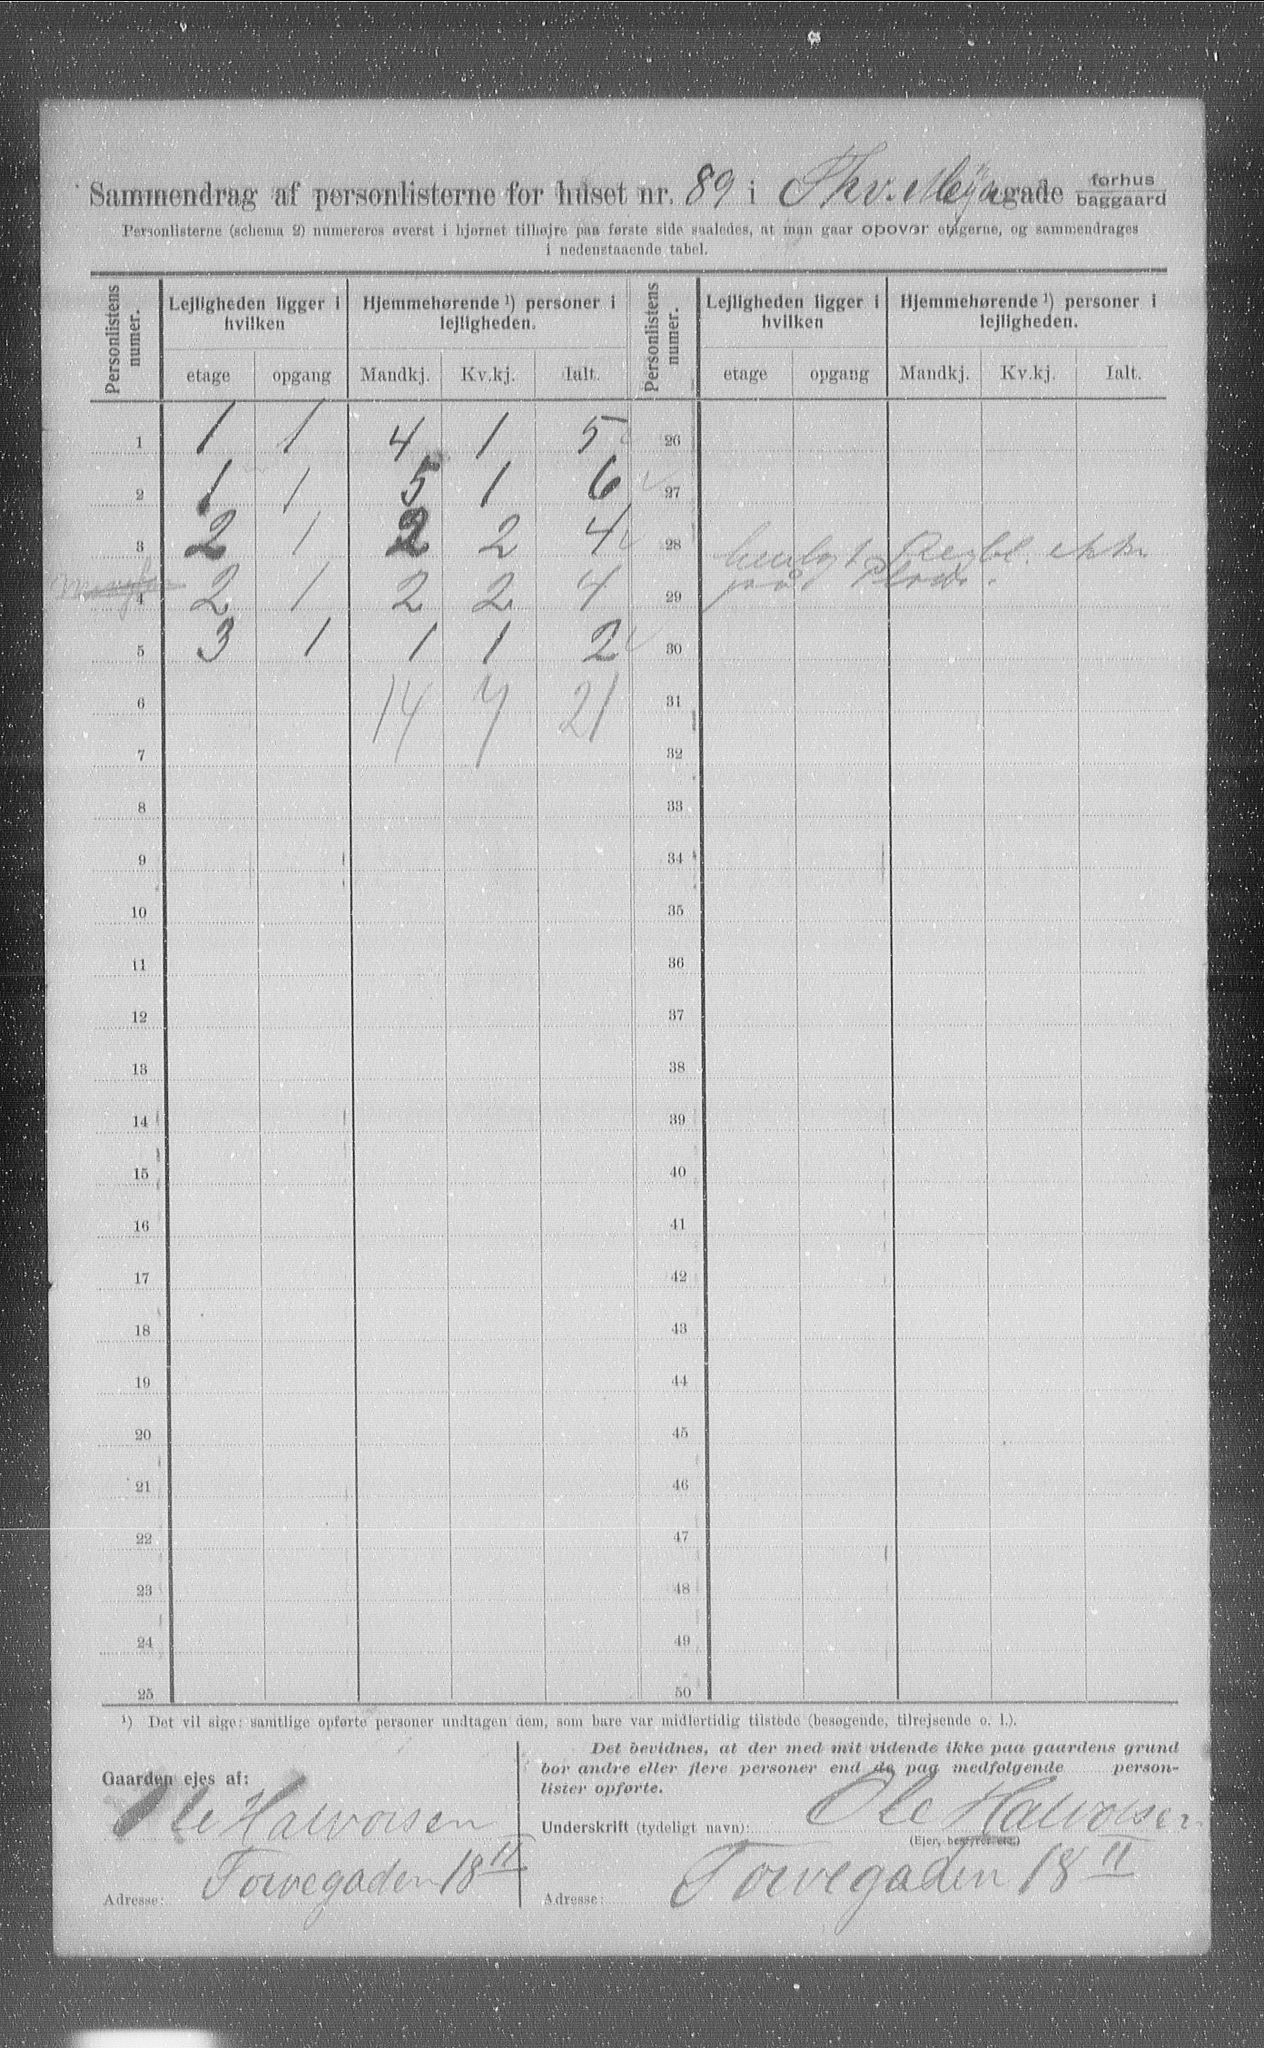 Sammendrag af personlisterne for huset nr. 89 i Thv. Meyergade forhus baggaard
Personlisterne (schema 2) numereres øverst i hjørnet tilhøjre paa første side saaledes, at man gaar opover etagerne, og sammendrages
i nedenstaaende tabel.
Personlistens numer. Lejligheden ligger i hvilken Hjemmehørende ¹) personer i lejligheden. Personlistens numer. Lejligheden ligger i hvilken Hjemmehørende ¹) personer i lejligheden.
etage opgang Mandkj. Kv.kj. Ialt. etage opgang Mandkj. Kv.kj. Ialt.
1 1 1 4 1 5 26
2 1 1 5 1 6 27
3 2 1 2 2 4 28
4 2 1 2 2 4 29
5 3 1 1 1 2 30
6 14 7 21 31
7 32
8 33
9 34
10 35
11 36
12 37
13 38
14 39
15 40
16 41
17 42
18 43
19 44
20 45
21 46
22 47
23 48
24 49
25 50
¹) Det vil sige: samtlige opførte personer undtagen dem, som bare var midlertidig tilstede (besøgende, tilrejsende o. l.).
Gaarden ejes af:
Ole Halvorsen
Adresse: Torvegaden 18 II
Det bevidnes, at der med mit vidende ikke paa gaardens grund
bor andre eller flere personer end de paa medfølgende person-
lister opførte.
Underskrift (tydeligt navn): Ole Halvorsen
(Ejer, bestyrer etc.)
Adresse: Torvegaden 18 II